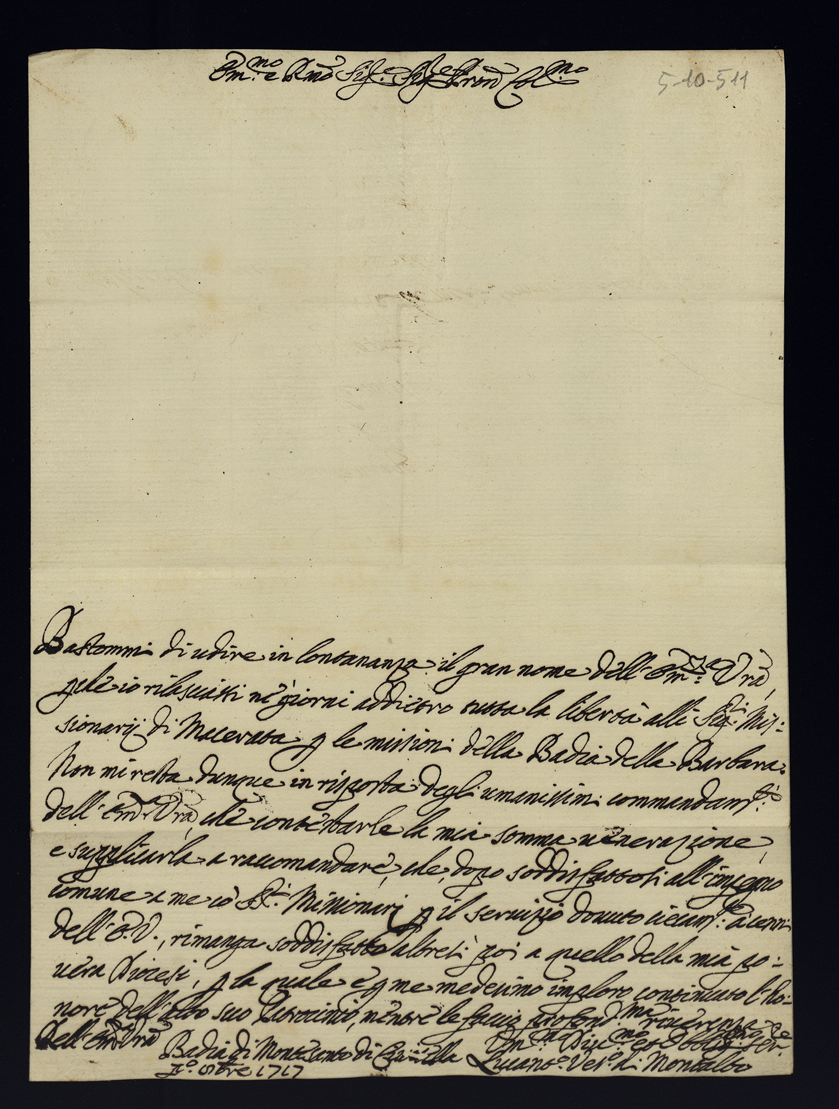 Em.mo e Rmo Sig.e Sig.e Pron Col.mo
5-10-511
Bastommi di udire in lontananza il gran nome dell'Em.a Vra,
che io rilasciassi ne giorni addietro tutta la libertà alli Sig.ri Mis:
sionarij di Macerata p le missioni della Badia della Barbara.
Non mi resta dunque in risposta degli umanissimi commandam.ti
dell'Em.a Vra, che contestarle la mia somma venerazione,
e supplicarla a raccomandare, che, dopo soddisfattosi all'impegno
comune a me cò SS.ri Missionarj p il servizio dovuto ai cenni
dell'E.V., rimanga soddisfatto altresì poi a quello della mia po:
vera Diocesi, p la quale e p me medesimo imploro continuato l'ho:
nore dell'alto suo Patrocinio, mentre le faccio profond.ma riverenza
Dell'Em.a Vra
Badia di Monte
Xbre 1717
Um.mo